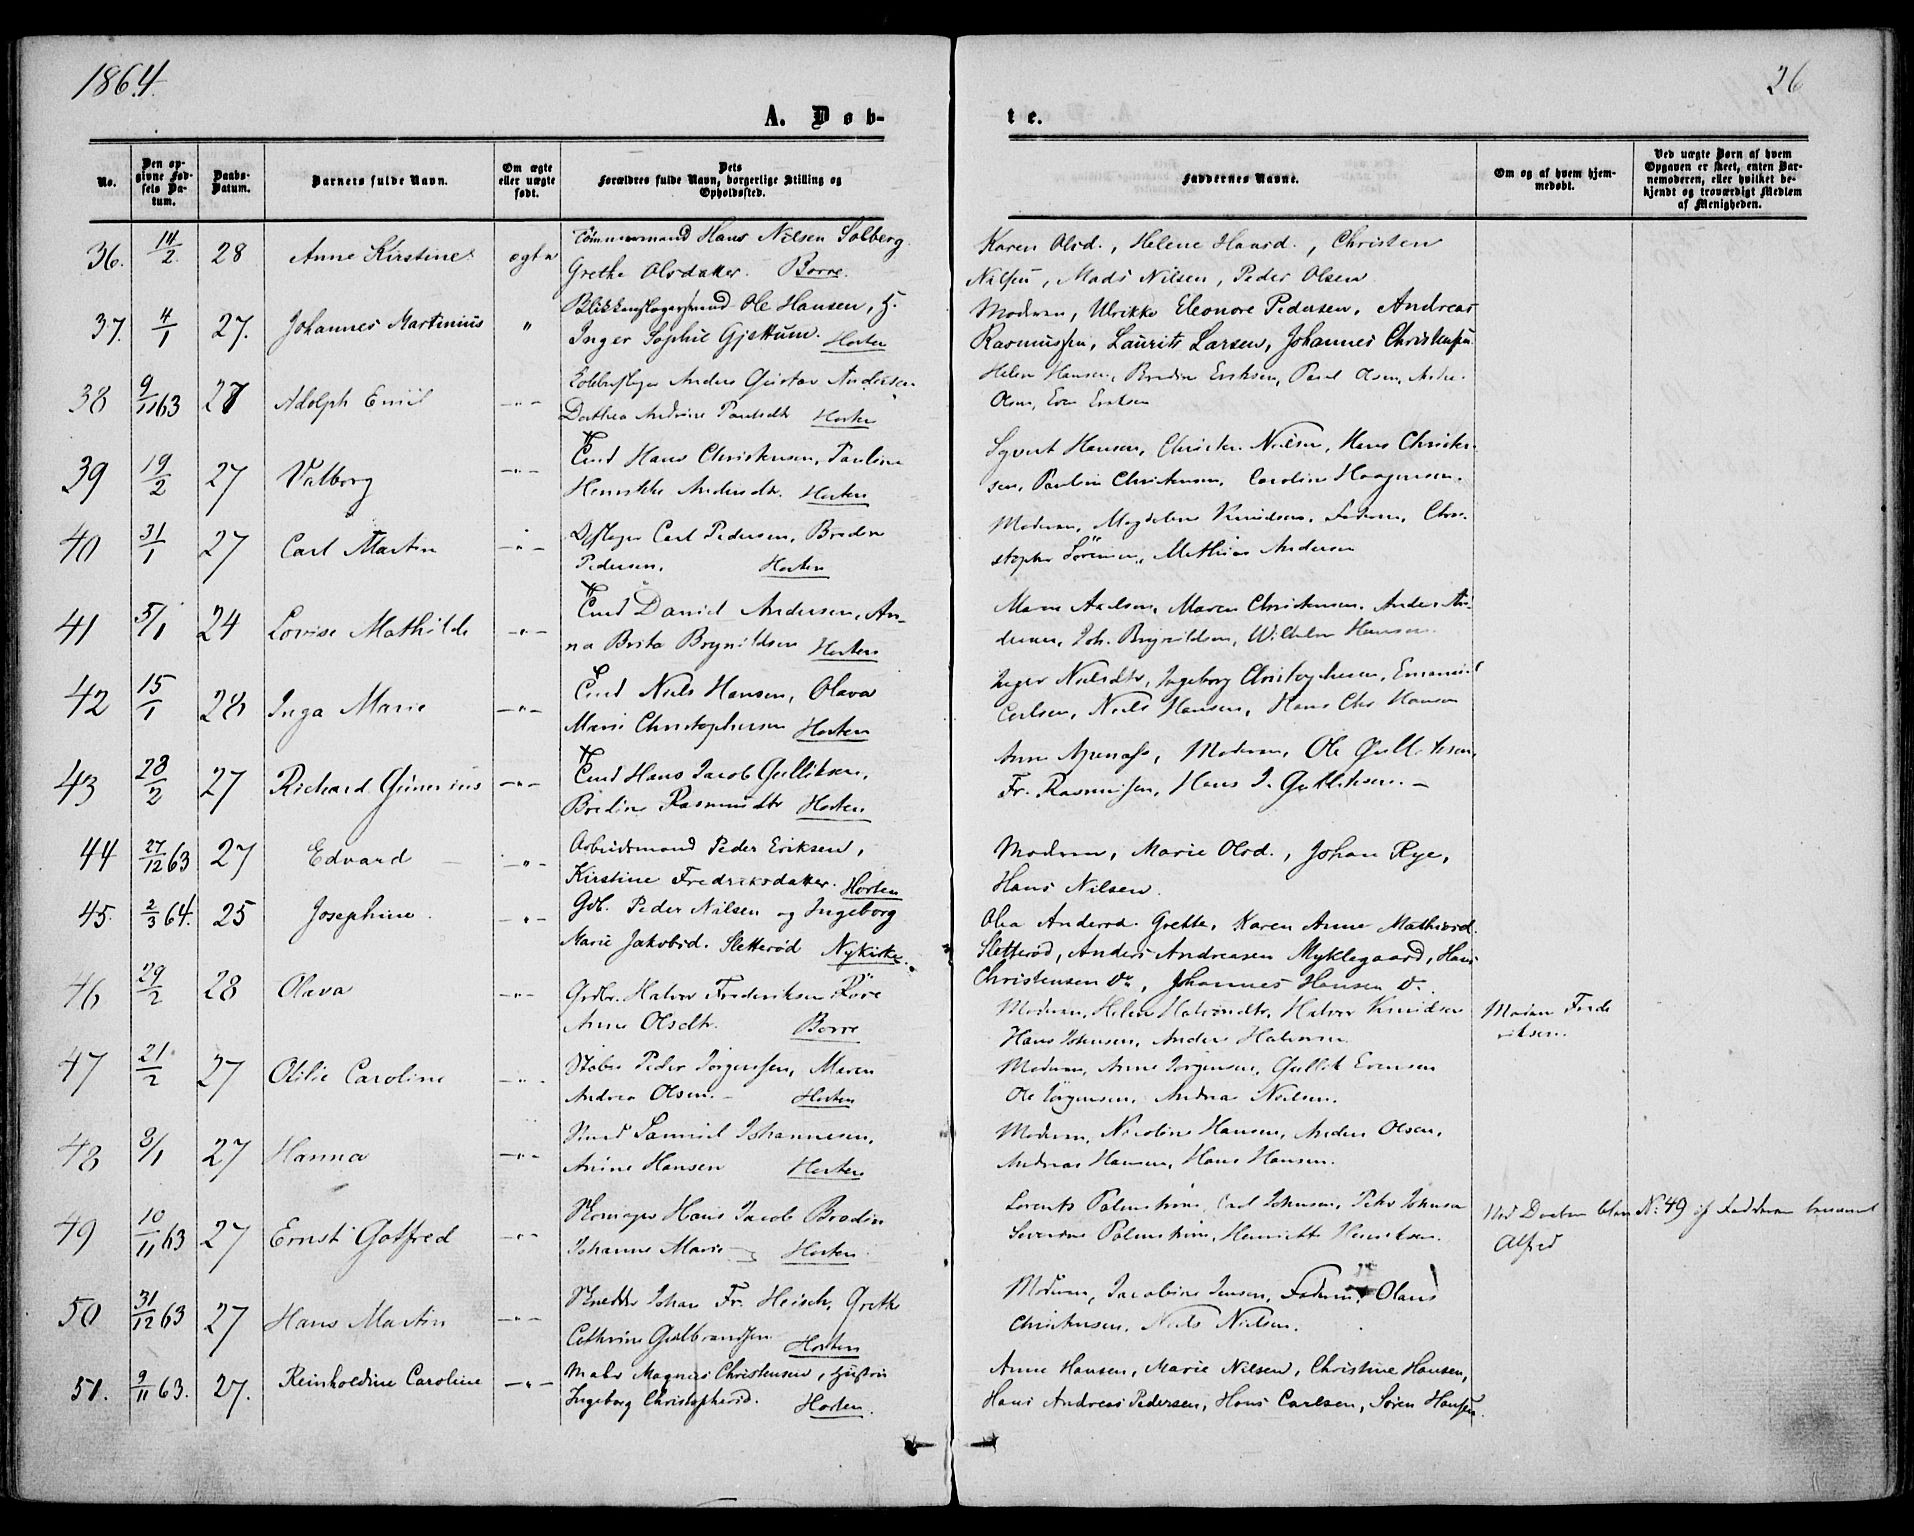 1864.
26
A. Døb-
te.
No.
Den op-
givne Fød-
sels Da-
tum.
Daabs-
Datum.
Barnets fulde Navn.
Om ægte
eller uægte
født.
Dets
Forældres fulde Navn, borgerlige Stilling og
Opholdssted.
Faddernes Navne.
Om og af hvem hjem-
medøbt.
Ved uægte Børn af hvem
Opgaven er skeet, enten Bar-
nemoderen, eller hvilket be-
kjendt og troværdigt Medlem
af Menigheden.
36. 14/2 28 Anne Kirstine ægte Tømmermand Hans Nilsen Solberg
Grethe Olsdatter. Borre.
Karen Olsd., Helene Hansd., Christen
Nilsen, Mads Nilsen, Peder Olsen
37. 4/1 27. Johannes Martinius " Ole Hansen, H.
Inger Sophie Gjettum. Horten
Moderen, Ulrikke Eleonore Pedersen, Andreas
Rasmussen, Laurits Larsen, Johannes Christensen
38 9/11 63 27 Adolph Emil -"- Anders Gustav Andersen
Dorthea Andrine Paulsdtr Horten
Helene Hansen, Bredine Eriksen, Paul Olsen, Andr.
Olsen, Even Eriksen
39 19/2 27 Valborg -"- Tmd Hans Christensen, Pauline
Henrikke Andersdtr. Horten
Syvert Hansen, Christen Nilsen, Hans Christen-
sen, Pauline Christensen, Caroline Haagensen.
40 31/1 27 Carl Martin -"- Carl Pedersen, Bredine
Pedersen. Horten
Moderen, Magdalene Knudsen, Faderen, Chri-
stopher Sörensen, Mathias Andersen
41 5/1 24 Lovise Mathilde -"- Tmd Daniel Andersen, An-
na Brita Brynildsen Horten
Maren Axelsen, Maren Christensen, Anders An-
dersen, Joh. Brynildsen, Wilhelm Hansen.
42 15/1 28 Inga Marie -"- Tmd Niels Hansen, Olava
Marie Christophersen Horten
Inger Nielsdtr, Ingeborg Christophersen, Emanuel
Carlsen, Niels Hansen, Hans Chr Hansen
43 28/2 27 Richard Gunerius -"- Tmd Hans Jacob Gulliksen,
Bredine Rasmusdtr Horten
Anne, Moderen, Ole Gulliksen,
Fr. Rasmussen, Hans J. Gulliksen. -
44 27/12 63 27 Edvard -"- Arbeidsmand Peder Eriksen,
Kirstine Fredriksdatter. Horten
Moderen, Marie Olsd., Johan Rye,
Hans Nilsen.
45. 2/3 64. 25 Josephine. -"- Gdb. Peder Nilsen og Ingeborg
Marie Jakobsd. Sletterød Nykirke.
Olea Andersd. Grette, Karen Anne Mathisd.
Sletterød, Anders Andreasen Myklegaard, Hans
Christensen do, Johannes Hansen do.
46 29/2 28 Olava -"- Grdbr. Halvor Frederiksen Röre
Anne Olsdtr. Borre
Moderen, Helene Halvorsdtr, Halvor Knudsen
Hans Johnsen, Anders Halvorsen
Frede-
riksen.
47 21/2 27 Otilie Caroline -"- Peder Jörgensen, Maren
Andrea Olsen. - Horten
Moderen, Anne Jörgensen, Gullik Evensen
Ole Jörgensen, Andrea Nielsen.
48 3/1 27 Hanna -"- Samuel Johannesen,
Anine Hansen Horten
Moderen, Nicoline Hansen, Anders Olsen,
Andreas Hansen, Hans Hansen.
49 10/11 63 27 Ernst Gotfred -"- Skomager Hans Jacob Bredin
Johanne Marie Horten.
Lorents Palmström, Carl Johnsen, Peter Johnsen
Severine Palmström, Henriette Henriksen.
Ved Daaben blev No 49 af Fadderne benævnt
Alfred
50 31/12 63 27 Hans Martin -"- Snedker Johan Fr. Heisch, Grethe
Cathrine Gulbrandsen Horten
Moderen, Jacobine Jensen, Faderen, Olaus
Christensen, Niels Nielsen.
51. 9/11 63. 27. Reinholdine Caroline -"- Maler Magnus Christensen, Hustru
Ingeborg Christophersd. Horten.
Anne Hansen, Marie Nilsen, Christine Hansen,
Hans Andreas Pedersen, Hans Carlsen, Søren Hansen.